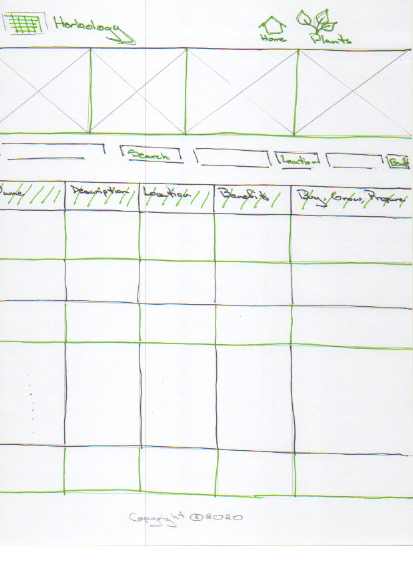 Herbology
Home Plants
Search Location
Description Location Benefits Buy, Grow, Prepare
Copyright © 2020